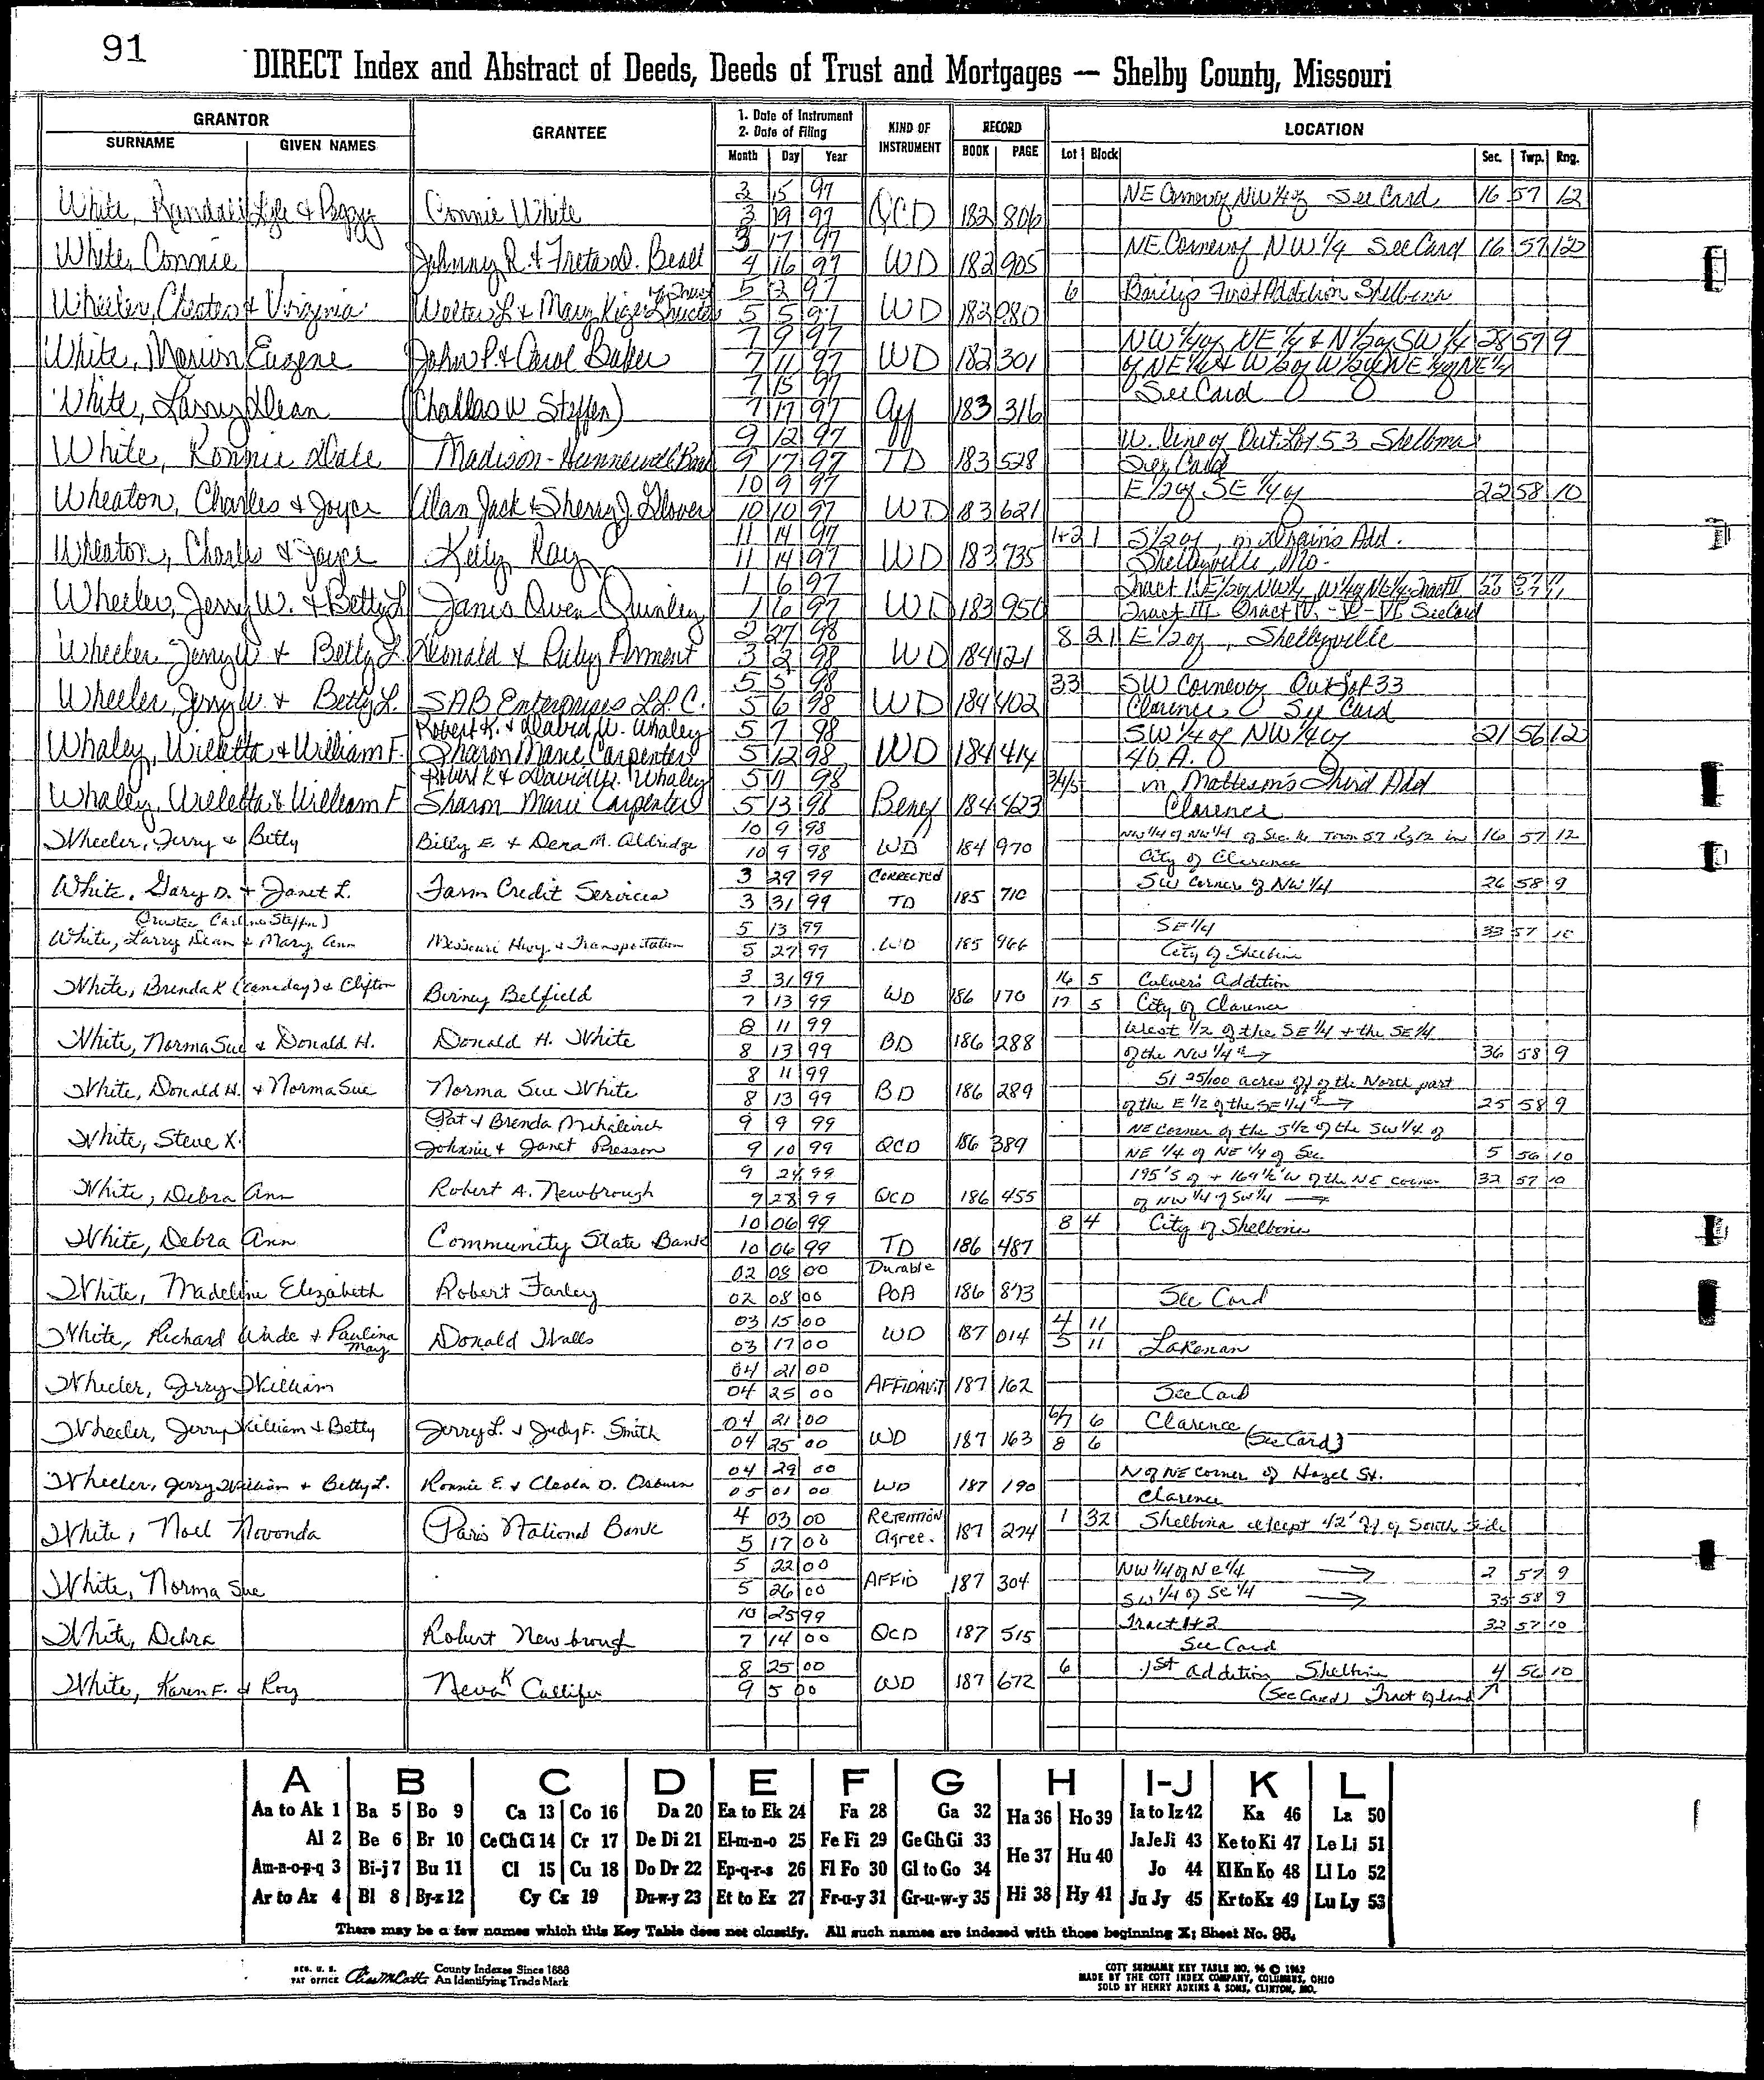 91
DIRECT Index and Abstract of Deeds, Deeds of Trust and Mortgages — Shelby County, Missouri
GRANTOR GRANTEE 1. Date of Instrument 2. Date of Filing KIND OF INSTRUMENT RECORD LOCATION
SURNAME GIVEN NAMES Month Day Year BOOK PAGE Lot Block Sec. Twp. Rng.
3 15 97 NE Corner of NW 1/4 of See Card 16 57 12
White, Randall Lyle & Peggy Connie White 3 19 97 QCD 182 806
3 17 97 NE Corner of NW 1/4 See Card 16 57 12
White, Connie Johnny R. & Freta D. Beall 4 16 97 WD 182 905
5 2 97 6 First Addition Shelbina
Wheeler, Chester & Virginia Walter L & Mary 5 5 97 WD 182 980
7 9 97 NW 1/4 of NE 1/4 & N 1/2 of SW 1/4 28 57 9
White, Marion Eugene John P. & Carol Baker 7 11 97 WD 182 301 of NE 1/4 & W 1/2 of W 1/2 of NE 1/4 of NE 1/4
7 15 97 See Card
White, Larry Dean (Challas W Steffen) 7 17 97 Aff 183 316
9 12 97 W. line of Out Lot 53 Shelbina
White, Ronnie Dale Madison-Hunnewell Bank 9 17 97 TD 183 528 See Card
10 9 97 E 1/2 of SE 1/4 of 22 58 10
Wheaton, Charles & Joyce Alan Jack & Sherry J. Glover 10 10 97 WD 183 621
11 14 97 1+2 1 S 1/2 of, in Add.
Wheaton, Charles & Joyce Kelly Ray 11 14 97 WD 183 735 Shelbyville, Mo.
1 6 97 Tract I E 1/2 of NW 1/4,
Wheeler, Jerry W. & Betty L Janis Owen Quinley 1 6 97 WD 183 950 Tract III Tract IV - V - VI See Card
2 27 98 8 21 E 1/2 of, Shelbyville
Wheeler Jerry W & Betty L. Donald & Ruby Perment 3 2 98 WD 184 121
5 5 98 33 SW Corner of Out Lot 33
Wheeler, Jerry W & Betty L. SAB Enterprises L.L.C. 5 6 98 WD 184 402 Clarence See Card
Robert K. & David W. Whaley 5 7 98 SW 1/4 of NW 1/4 of 21 56 12
Whaley, Willetta & William F. Sharon Marie Carpenter 5 12 98 WD 184 414 40 A.
Robert K & David W. Whaley 5 11 98 3/4/5 in Matteson's Third Add
Whaley, Willetta & William F Sharon Marie Carpenter 5 13 98 Benef 184 423 Clarence
10 9 98 NW 1/4 of NW 1/4 of Sec. 16 Town 57 Rg 12 in 16 57 12
Wheeler, Jerry & Betty Billy E. & Dena M. Aldridge 10 9 98 WD 184 970 City of Clarence
3 29 99 CORRECTED SW corner of NW 1/4 26 58 9
White, Gary D. & Janet L. Farm Credit Services 3 31 99 TD 185 710
(Trustee Steffen) 5 13 99 SE 1/4 33 57 10
White, Larry Dean & Mary Ann Missouri Hwy. & Transportation 5 27 99 WD 185 966 City of Shelbina
3 31 99 16 5 Culver's Addition
White, Brenda K (Canaday) & Clifton Birney Belfield 7 13 99 WD 186 170 17 5 City of Clarence
8 11 99 West 1/2 of the SE 1/4 & the SE 1/4
White, Norma Sue & Donald H. Donald H. White 8 13 99 BD 186 288 of the NW 1/4 → 36 58 9
8 11 99 51 25/100 acres off of the North part
White, Donald H. & Norma Sue Norma Sue White 8 13 99 BD 186 289 of the E 1/2 of the SE 1/4 → 25 58 9
Pat & Brenda 9 9 99 NE Corner of the S 1/2 of the SW 1/4 of
White, Steve K. Johnnie & Janet Presson 9 10 99 QCD 186 389 NE 1/4 of NE 1/4 of Sec. 5 56 10
9 24 99 195'S of + 169 1/2'W of the NE corner 32 57 10
White, Debra Ann Robert A. Newbrough 9 28 99 QCD 186 455 of NW 1/4 of SW 1/4 →
10 06 99 8 4 City of Shelbina
White, Debra Ann Community State Bank 10 06 99 TD 186 487
02 08 00 Durable
White, Madeline Elizabeth Robert Farley 02 08 00 POA 186 873 See Card
03 15 00 4 11
White, Richard Wade & Paulina May Donald Walls 03 17 00 WD 187 014 5 11 Lakenan
04 21 00
Wheeler, Jerry William 04 25 00 AFFIDAVIT 187 162 See Card
04 21 00 6/7 6 Clarence
Wheeler, Jerry William & Betty Jerry L. & Judy F. Smith 04 25 00 WD 187 163 8 6 (See Card)
04 29 00 N of NE corner of Hazel St.
Wheeler, Jerry William & Betty L. Ronnie E. & Cleola D. Osburn 05 01 00 WD 187 190 Clarence
4 03 00 Retention 1 32 Shelbina except 42' off of South side
White, Noel Novonda Paris National Bank 5 17 00 Agree. 187 274
5 22 00 NW 1/4 of NE 1/4 → 2 57 9
White, Norma Sue 5 26 00 AFFID 187 304 SW 1/4 of SE 1/4 → 35 58 9
10 25 99 Tract 1 & 2 32 57 10
White, Debra Robert Newbrough 7 14 00 QCD 187 515 See Card
8 25 00 6 1st Addition Shelbina 4 56 10
White, Karen F. & Roy Neva K Culliper 9 5 00 WD 187 672 (See Card) Tract of land ↗
A B C D E F G H I-J K L
Aa to Ak 1 Ba 5 Bo 9 Ca 13 Co 16 Da 20 Ea to Ek 24 Fa 28 Ga 32 Ha 36 Ho 39 Ia to Iz 42 Ka 46 La 50
Al 2 Be 6 Br 10 Ce Ch Ci 14 Cr 17 De Di 21 El-m-n-o 25 Fe Fi 29 Ge Gh Gi 33 He 37 Hu 40 Ja Je Ji 43 Ke to Ki 47 Le Li 51
Am-n-o-p-q 3 Bi-j 7 Bu 11 Cl 15 Cu 18 Do Dr 22 Ep-q-r-s 26 Fl Fo 30 Gl to Go 34 Hi 38 Hy 41 Jo 44 Kl Kn Ko 48 Ll Lo 52
Ar to Az 4 Bl 8 By-z 12 Cy Cz 19 Du-w-y 23 Et to Ez 27 Fr-u-y 31 Gr-u-w-y 35 Ju Jy 45 Kr to Kz 49 Lu Ly 53
There may be a few names which this Key Table does not classify. All such names are indexed with those beginning X; Sheet No. 95.
REG. U. S. PAT OFFICE County Indexes Since 1888 An Identifying Trade Mark
COTT SURNAME KEY TABLE NO. 96 © 1962
MADE BY THE COTT INDEX COMPANY, COLUMBUS, OHIO
SOLD BY HENRY ADKINS & SONS, CLINTON, MO.